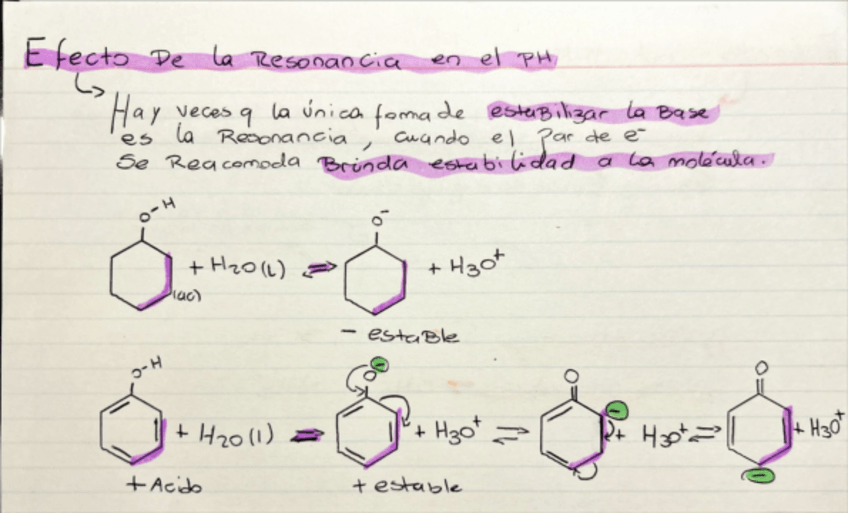 Efecto De la Resonancia en el PH
Hay veces q la única forma de estabilizar la Base
es la Resonancia, cuando el Par de e⁻
Se Reacomoda Brinda estabilidad a la molécula.
O-H + H2O(l) ⇌ O⁻ + H3O⁺
(ac)
- estable
O-H + H2O(l) ⇌ O⊖ + H3O⁺ ⇌ O ⊖ + H3O⁺ ⇌ O ⊖ + H3O⁺
+ Acido + estable